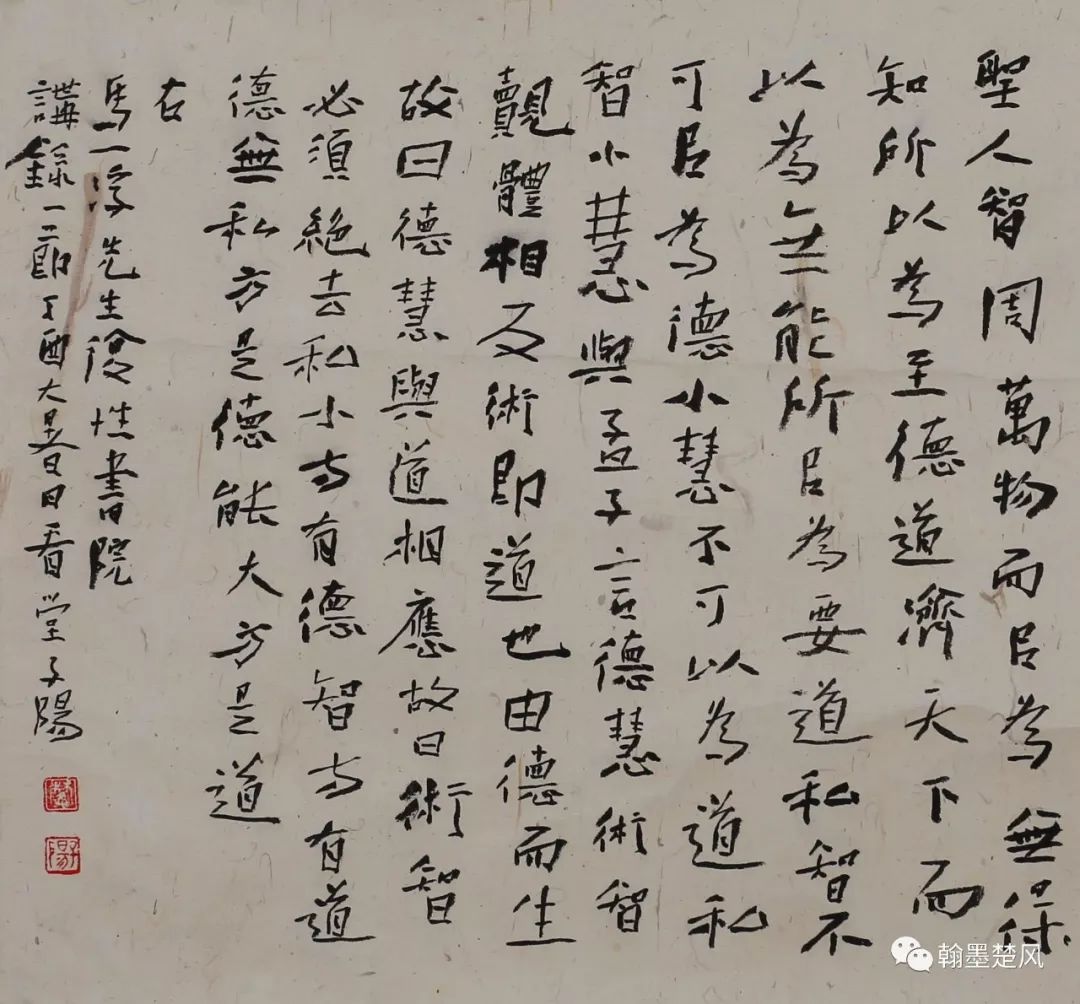 聖人智周萬物而㠯為無
知所以為至德道濟天下而
以為無能所㠯為要道私智不
可㠯為德小慧不可以為道私
智小慧與孟子言德慧術智
覿體相反術即道也由德而生
故曰德慧與道相應故曰術智
必須絕去私小方有德智方有道
德無私方是德能大方是道
右
馬一浮先生復性書院
講錄一節丁酉大暑日看堂子陽
翰墨楚风